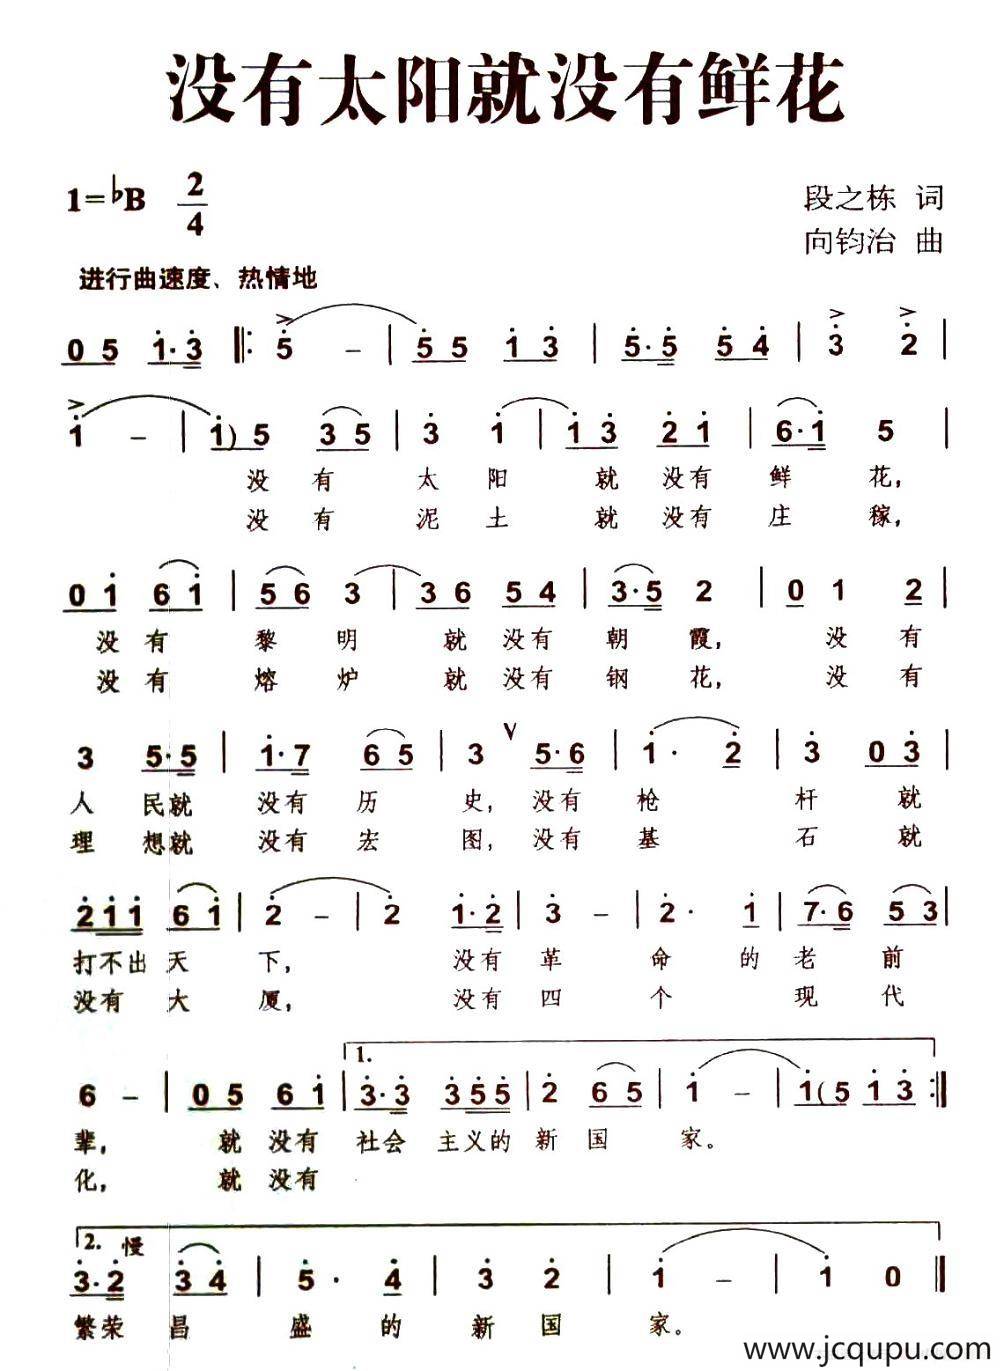 没有太阳就没有鲜花
1=♭B 2/4
段之栋 词
向钧治 曲
进行曲速度、热情地
0 5 1·3 ‖: 5 – | 5 5 1 3 | 5·5 5 4 | 3 2 |
1 – | 1) 5 3 5 | 3 1 | 1 3 2 1 | 6·1 5 |
没有太阳就没有鲜花,
没有泥土就没有庄稼,
0 1 6 1 | 5 6 3 | 3 6 5 4 | 3·5 2 | 0 1 2 |
没有黎明就没有朝霞, 没有
没有熔炉就没有钢花, 没有
3 5·5 | 1·7 6 5 | 3 V 5·6 | 1· 2 | 3 0 3 |
人民就没有历史, 没有枪杆就
理想就没有宏图, 没有基石就
2 1 1 6 1 | 2 – | 2 1·2 | 3 – | 2· 1 | 7·6 5 3 |
打不出天下, 没有革命的老前
没有大厦, 没有四个现代
1.
6 – | 0 5 6 1 | 3·3 3 5 5 | 2 6 5 | 1 – | 1 (5 1 3 :‖
辈, 就没有社会主义的新国家。
化, 就没有
2. 慢
3·2 3 4 | 5· 4 | 3 2 | 1 – | 1 0 ‖
繁荣昌盛的新国家。
www.jcqupu.com